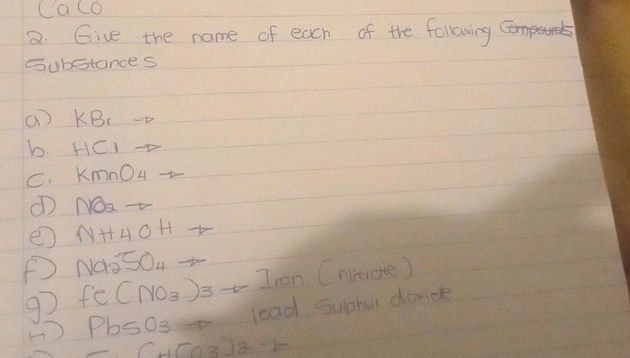 CaCO
2. Give the name of each of the following Compounds
Substances
a) KBr →
b. HCl →
c. KmnO4 →
d) NO2 →
e) NH4OH →
f) Na2SO4 →
g) fe(NO3)3 → Iron (nitrate)
H) PbSO3 → lead Sulphur dioxide
(HCO3)2 →